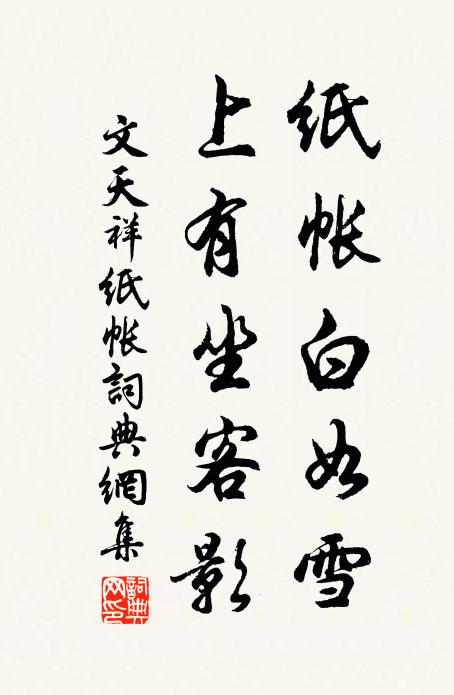 纸帐白如雪
上有坐客影
文天祥纸帐詞典網集
詞典
网印